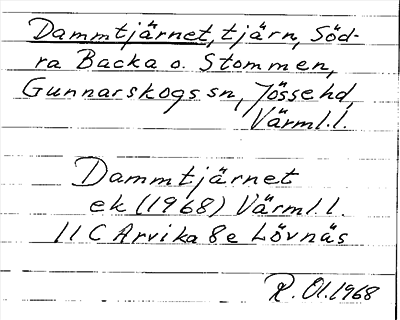 Dammtjärnet, tjärn, Söd-
ra Backa o. Stommen,
Gunnarskogs sn, Jösse hd,
Värml.l.
Dammtjärnet
ek (1968) Värml.l.
11 C Arvika 8e Lövnäs
R. Ol. 1968